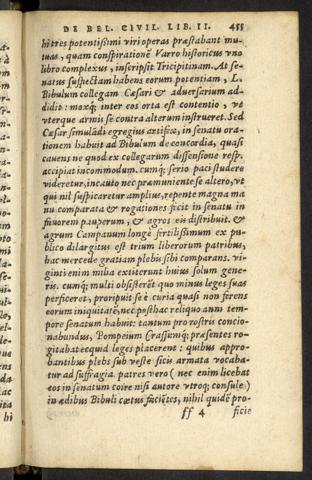 DE BEL. CIVIL. LIB. II. 455
hi tres potentissimi viri operas præstabant mu-
tuas, quam conspirationē Varro historicus vno
libro complexus, inscripsit Tricipitinam. At se-
natus suspectam habens eorum potentiam, L.
Bibulum collegam Cæsari & aduersarium ad-
didit: moxq; inter eos orta est contentio, vt
vterque armis se contra alterum instrueret. Sed
Cæsar simulādi egregius artifex, in senatu ora-
tionem habuit ad Bibulum de concordia, quasi
cauens ne quod ex collegarum dissensione resp.
accipiat incommodum. cumq; serio paci studere
videretur, incauto nec præmuniente se altero, vt
qui nil suspicaretur amplius, repente magna ma
nu comparata & rogationes fecit in senatu in
fauorem pauperum, & agros eis distribuit. &
agrum Campanum longè fertilissimum ex pu-
blico dilargitus est trium liberorum patribus,
hac mercede gratiam plebis sibi comparans. vi-
ginti enim milia extiterunt huius solum gene-
ris. cumq; multi obsisterēt quo minus leges suas
perficeret, proripuit se è curia quasi non ferens
eorum iniquitatē, nec posthac reliquo anni tem-
pore senatum habuit: tantum pro rostris concio-
nabundus, Pompeium Crassumq; præsentes ro-
gitabat ecquid leges placerent: quibus appro-
bantibus plebs sub veste sicis armata vocaba-
tur ad suffragia. patres vero ( nec enim licebat
eos in senatum coire nisi autore vtroq; consule )
in ædibus Bibuli cœtus faciētes, nihil quidē pro-
ff 4 ficie